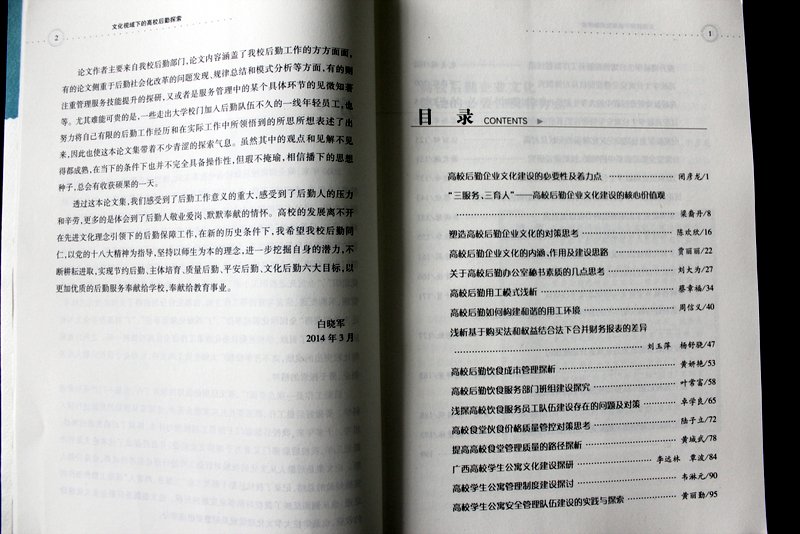 2
文化视域下的高校后勤探索
论文作者主要来自我校后勤部门,论文内容涵盖了我校后勤工作的方方面面,
有的论文侧重于后勤社会化改革的问题发现、规律总结和模式分析等方面,有的则
注重管理服务技能提升的探研,又或者是服务管理中的某个具体环节的见微知著
等。尤其难能可贵的是,一些走出大学校门加入后勤队伍不久的一线年轻员工,也
努力将自己有限的后勤工作经历和在实际工作中所领悟到的所思所想表述了出
来,因此也使这本论文集带着不少青涩的探索气息。虽然其中的观点和见解不见
得都成熟,在当下的条件下也并不完全具备操作性,但瑕不掩瑜,相信播下的思想
种子,总会有收获硕果的一天。
透过这本论文集,我们感受到了后勤工作意义的重大,感受到了后勤人的压力
和辛劳,更多的是体会到了后勤人敬业爱岗、默默奉献的情怀。高校的发展离不开
在先进文化理念引领下的后勤保障工作,在新的历史条件下,我希望我校后勤同
仁,以党的十八大精神为指导,坚持以师生为本的理念,进一步挖掘自身的潜力,不
断耕耘进取,实现节约后勤、主体培育、质量后勤、平安后勤、文化后勤六大目标,以
更加优质的后勤服务奉献给学校,奉献给教育事业。
白晓军
2014 年 3 月
1
目 录 CONTENTS
高校后勤企业文化建设的必要性及着力点 闭彦龙/1
“三服务、三育人”——高校后勤企业文化建设的核心价值观
梁裔丹/8
塑造高校后勤企业文化的对策思考 陈欢欣/16
高校后勤企业文化的内涵、作用及建设思路 贾丽丽/22
关于高校后勤办公室秘书素质的几点思考 刘大为/27
高校后勤用工模式浅析 蔡章福/34
高校后勤如何构建和谐的用工环境 周信义/40
浅析基于购买法和权益结合法下合并财务报表的差异
刘玉萍 杨舒晓/47
高校后勤饮食成本管理探析 黄妍艳/53
高校后勤饮食服务部门班组建设探究 叶常富/58
浅探高校饮食服务员工队伍建设存在的问题及对策 卓学良/65
高校食堂伙食价格质量管控对策思考 陆子立/72
提高高校食堂管理质量的路径探析 黄城武/78
广西高校学生公寓文化建设探研 李远林 覃波/84
高校学生公寓管理制度建设探讨 韦淋元/90
高校学生公寓安全管理队伍建设的实践与探索 黄丽勤/95